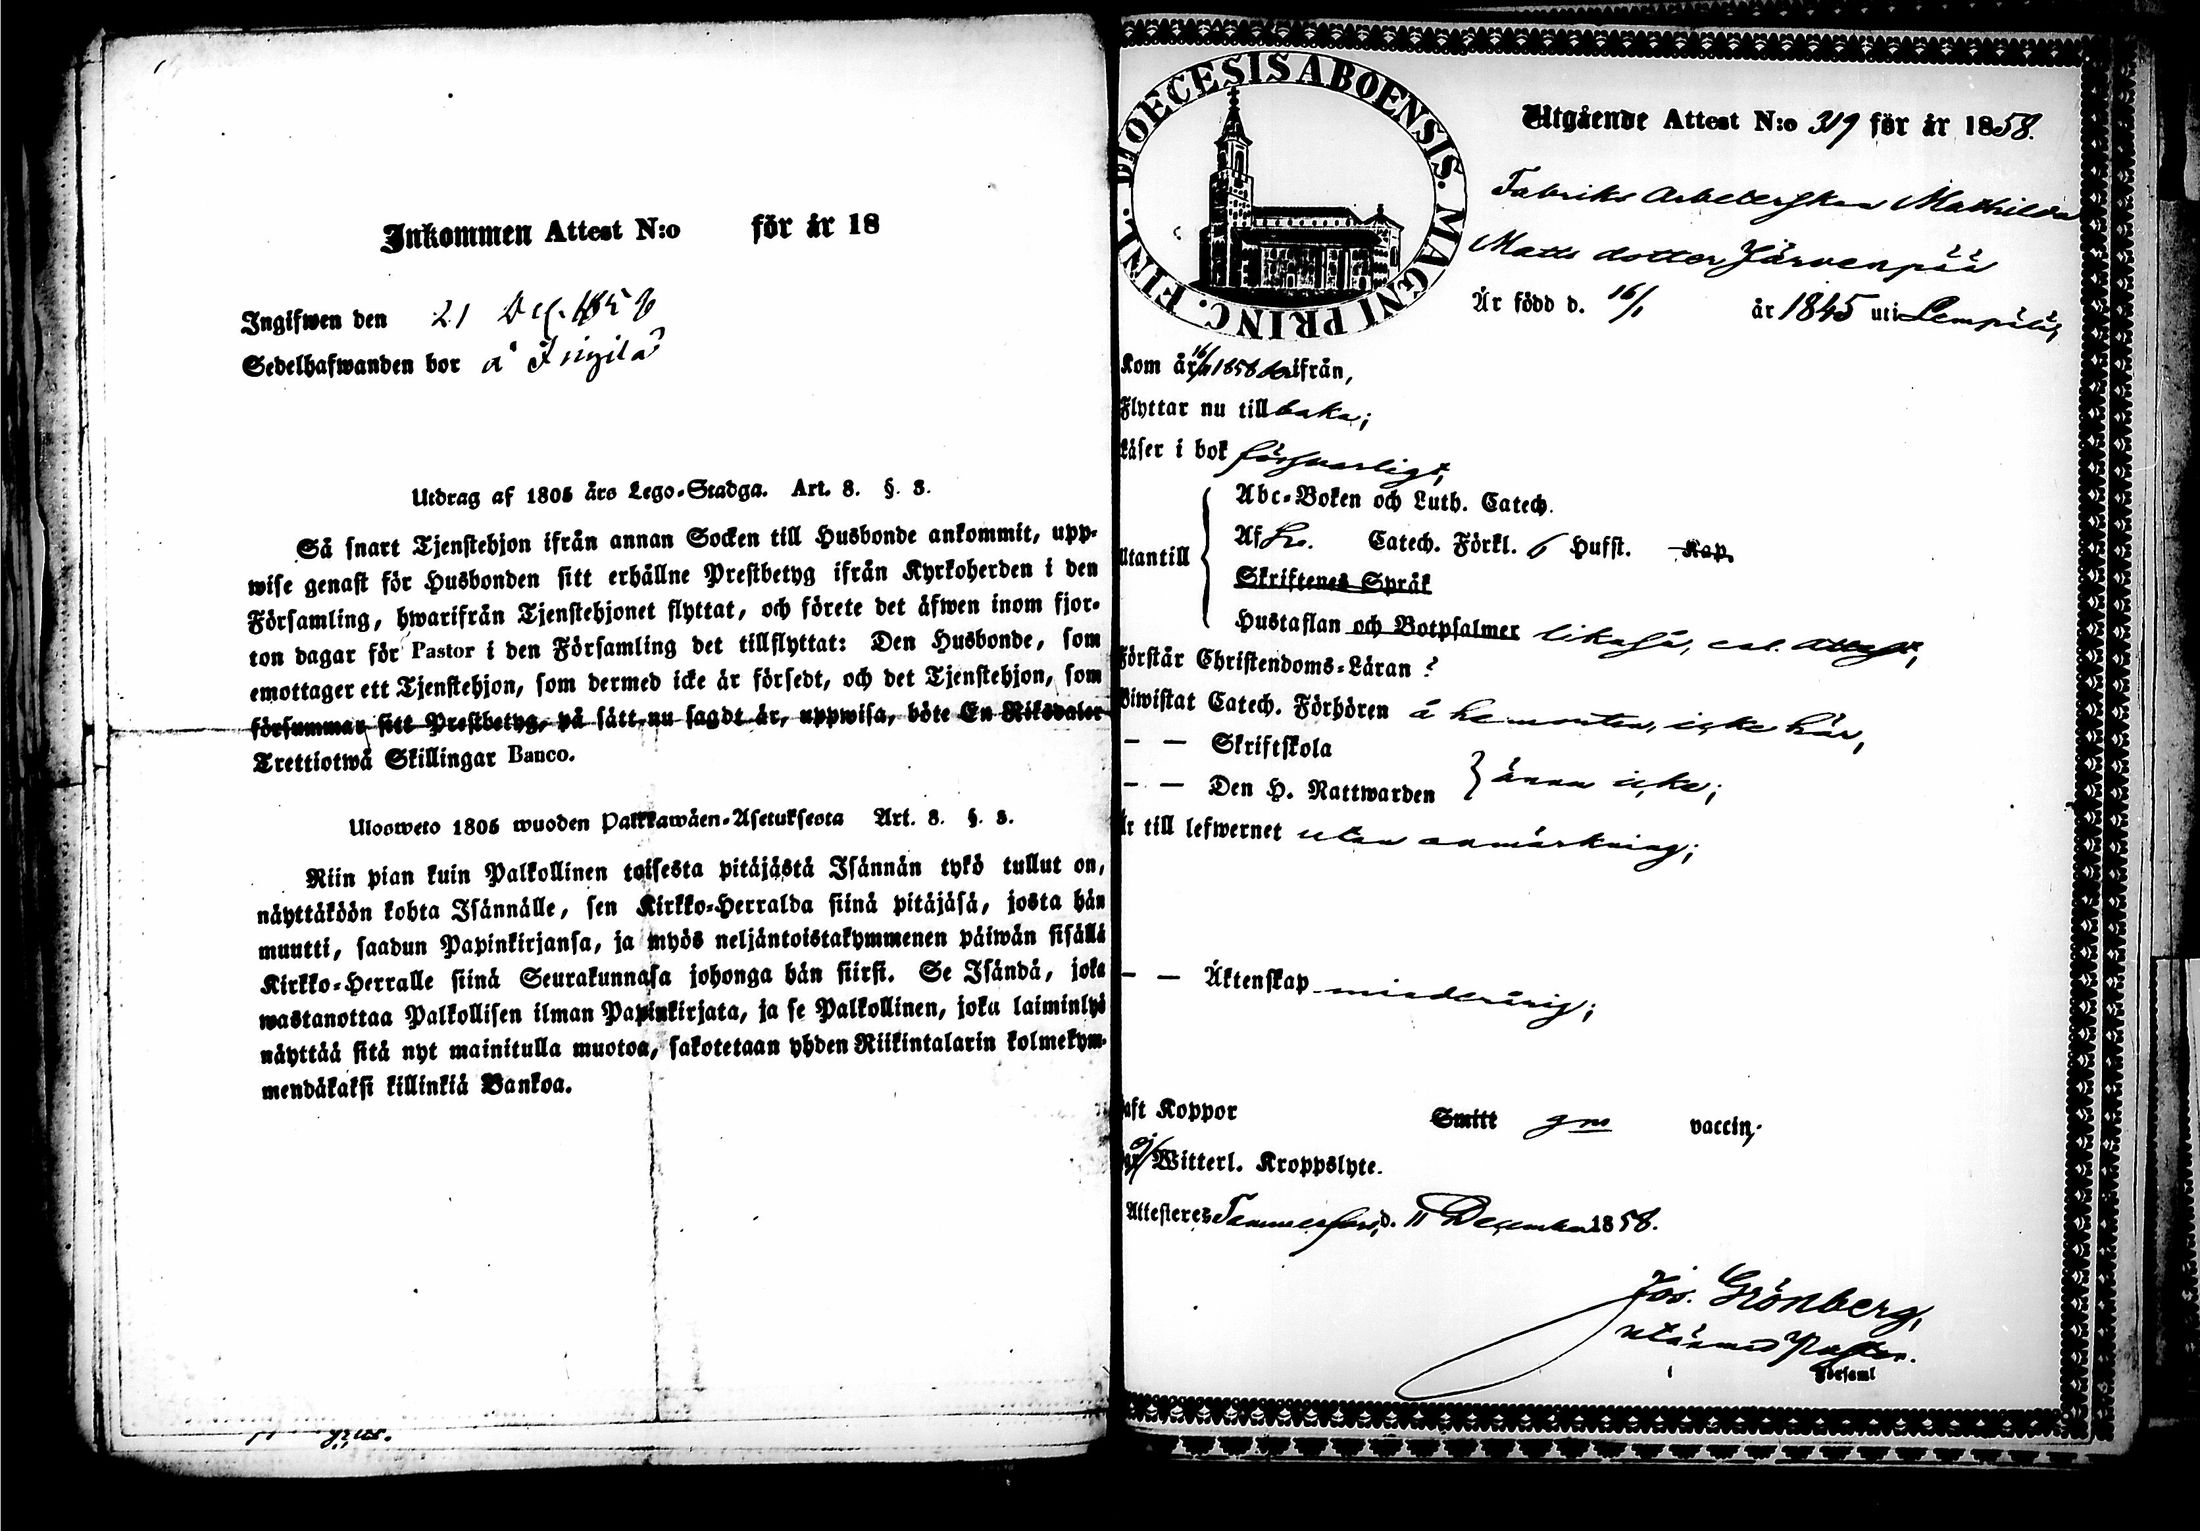 Inkommen Attest N:o för år 18
Ingifwen den 21 Dec. 1858
Sedelhafwanden bor å
Utdrag af 1805 års Lego-Stadga. Art. 8. §. 3.
Så snart Tjenstehjon ifrån annan Socken till Husbonde ankommit, upp-
wise genast för Husbonden sitt erhållne Prestbetyg ifrån Kyrkoherden i den
Församling, hwarifrån Tjenstehjonet flyttat, och förete det äfwen inom fjor-
ton dagar för Pastor i den Församling det tillflyttat: Den Husbonde, som
emottager ett Tjenstehjon, som dermed icke är försedt, och det Tjenstehjon, som
försummar sitt Prestbetyg, på sätt nu sagdt är, uppwisa, böte En Riksdaler
Trettiotwå Skillingar Banco.
Ulosweto 1805 wuoden Palkkawäen-Asetuksesta Art. 8. §. 3.
Niin pian kuin Palkollinen toisesta pitäjästä Isännän tykö tullut on,
näyttäköön kohta Isännälle, sen Kirkko-Herralda siinä pitäjäsä, josta hän
muutti, saadun Papinkirjansa, ja myös neljäntoistakymmenen päiwän sisällä
Kirkko-Herralle siinä Seurakunnasa johonga hän siirsi. Se Isändä, joka
wastanottaa Palkollisen ilman Papinkirjata, ja se Palkollinen, joka laiminlyö
näyttää sitä nyt mainitulla muotoa, sakotetaan yhden Riikintalarin kolmekym-
mendäkaksi killinkiä Bankoa.
DIOECESIS ABOENSIS. MAGNI PRINC. FINL.
Utgående Attest N:o 319 för år 1858.
Fabriks Arbeterskan Mathilda
Matts dotter Järvenpää
Är född d. 16/1 år 1845 uti Lempälä,
Kom år 1858 därifrån,
Flyttar nu tillbaka;
Läser i bok försvarligt,
Utantill
Abc-Boken och Luth. Catech.
Af Catech. Förkl. 6 Hufst. Kap.
Skriftenes Språk
Hustaflan och Botpsalmer likaså,
Förstår Christendoms-Läran ?
Biwistat Catech. Förhören å hemorten, icke här,
— — Skriftskola
— — Den H. Nattwarden } ännu icke;
Är till lefwernet utan anmärkning;
— — Äktenskap minderårig;
haft Koppor Smitt gm vaccin;
ej Witterl. Kroppslyte.
Attesteres Tammerfors, d. 11 December 1858.
Jos. Grönberg,
utnämnd Pastor.
i Församl